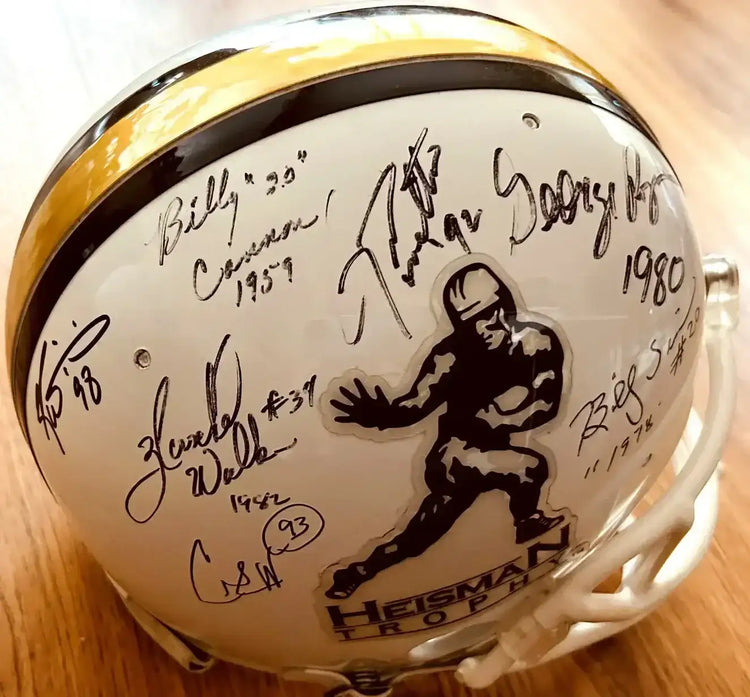 Billy "20"
Cannon
1959
George Rogers
1980
98
Herschel #34
Walker
1982
Billy Sims #20
"1978"
93
HEISMAN
TROPHY